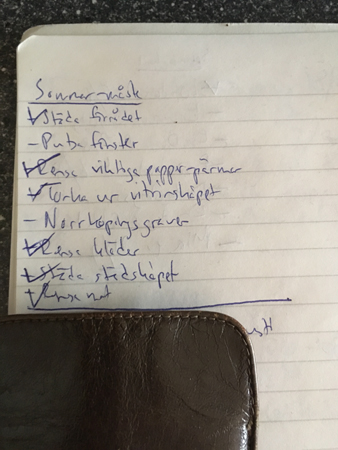 Sommar-måsk
Städa förrådet
- Putsa fönster
Rensa viktiga papper-pärmar
Torka ur vitrinskåpet
- Norrköpingsgraven
Rensa kläder
Städa städskåpet
Rensa mat